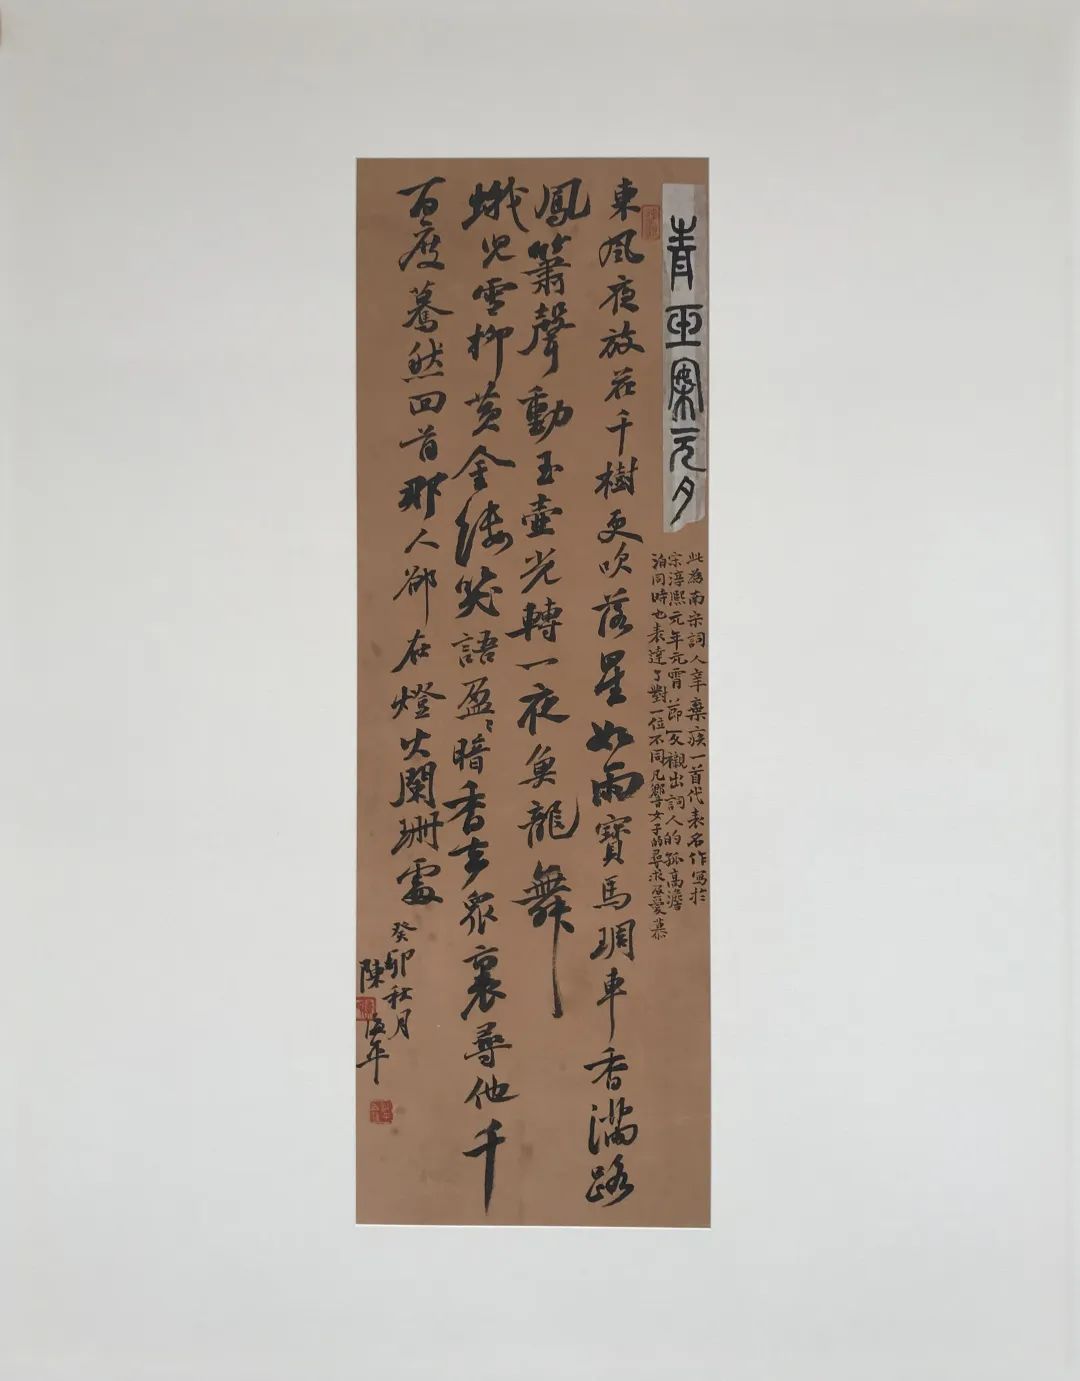 青玉案元夕
此為南宋詞人辛棄疾一首代表名作寫於
宋淳熙元年元宵節反襯出詞人的孤高澹
泊同時也表達了對一位不同凡響女子的尋求及愛慕
東風夜放花千樹更吹落星如雨寶馬琱車香滿路
鳳簫聲動玉壺光轉一夜魚龍舞
蛾兒雪柳黃金縷笑語盈盈暗香去眾裏尋他千
百度驀然回首那人卻在燈火闌珊處
癸卯秋月
陳海年